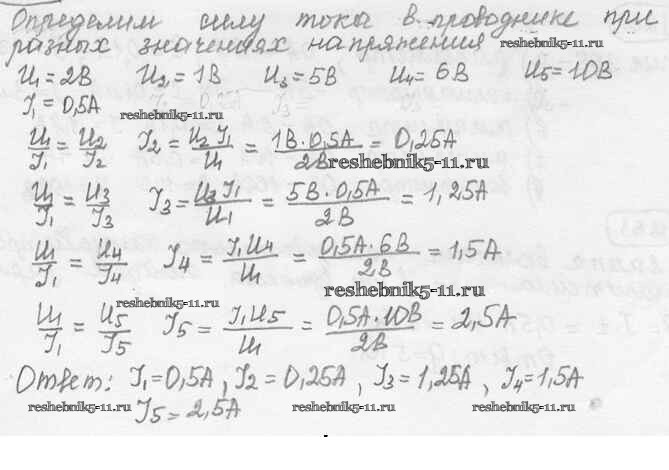 Определим силу тока в проводнике при
разных значениях напряжения reshebnik5-11.ru
U₁ = 2В U₂ = 1В U₃ = 5В U₄ = 6В U₅ = 10В
I₁ = 0,5А reshebnik5-11.ru
U₁/I₁ = U₂/I₂ I₂ = U₂ I₁/U₁ = 1В·0,5А/2В = 0,25А
reshebnik5-11.ru
U₁/I₁ = U₃/I₃ I₃ = U₃ I₁/U₁ = 5В·0,5А/2В = 1,25А
U₁/I₁ = U₄/I₄ I₄ = I₁ U₄/U₁ = 0,5А·6В/2В = 1,5А
reshebnik5-11.ru reshebnik5-11.ru
U₁/I₁ = U₅/I₅ I₅ = I₁ U₅/U₁ = 0,5А·10В/2В = 2,5А
Ответ: I₁ = 0,5А, I₂ = 0,25А, I₃ = 1,25А, I₄ = 1,5А
reshebnik5-11.ru I₅ = 2,5А reshebnik5-11.ru reshebnik5-11.ru